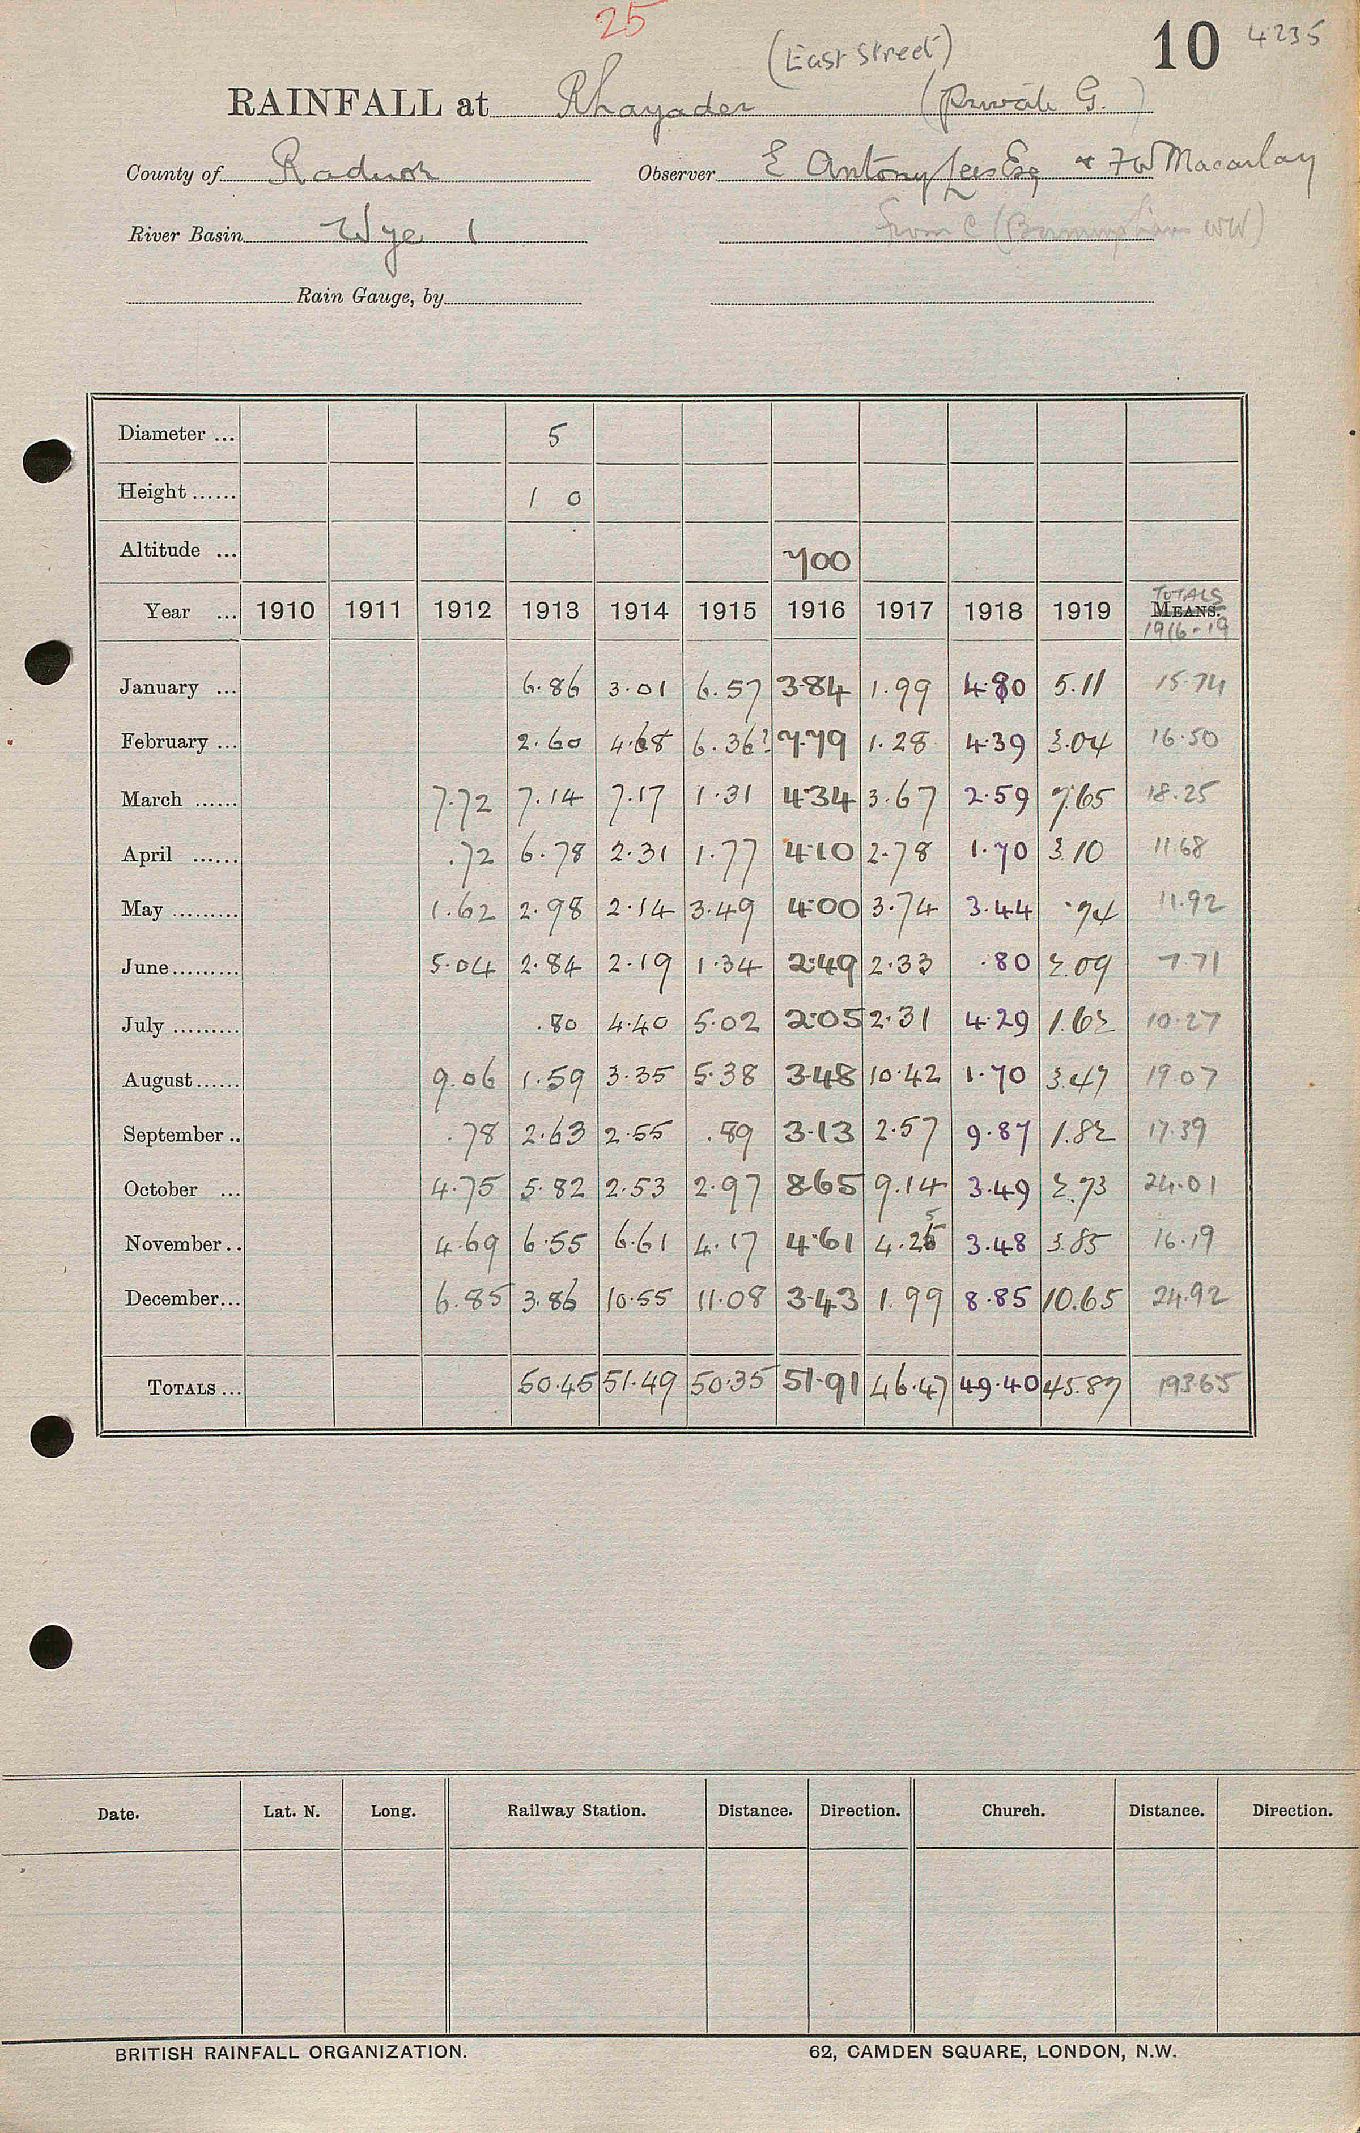 25
10 4235
(East Street)
RAINFALL at Rhayader (Private G.)
County of Radnor Observer E Antony Lees Esq + F W Macaulay
River Basin Wye 1 from C (Birmingham WW)
Rain Gauge, by
Diameter ... 5
Height ...... 1 0
Altitude ... 700
Year ... 1910 1911 1912 1913 1914 1915 1916 1917 1918 1919 TOTALS MEANS. 1916-19
January ... 6.86 3.01 6.57 3.84 1.99 4.80 5.11 15.74
February ... 2.60 4.68 6.36? 7.79 1.28 4.39 3.04 16.50
March ...... 7.72 7.14 7.17 1.31 4.34 3.67 2.59 7.65 18.25
April ...... .72 6.78 2.31 1.77 4.10 2.78 1.70 3.10 11.68
May ......... 1.62 2.98 2.14 3.49 4.00 3.74 3.44 .74 11.92
June......... 5.04 2.84 2.19 1.34 2.49 2.33 .80 2.09 7.71
July ......... .80 4.40 5.02 2.05 2.31 4.29 1.62 10.27
August...... 9.06 1.59 3.35 5.38 3.48 10.42 1.70 3.47 19.07
September .. .78 2.63 2.55 .89 3.13 2.57 9.87 1.82 17.39
October ... 4.75 5.82 2.53 2.97 8.65 9.14 3.49 2.73 24.01
November .. 4.69 6.55 6.61 4.17 4.61 4.25 3.48 3.85 16.19
December... 6.85 3.86 10.55 11.08 3.43 1.99 8.85 10.65 24.92
TOTALS ... 50.45 51.49 50.35 51.91 46.47 49.40 45.87 193.65
Date. Lat. N. Long. Railway Station. Distance. Direction. Church. Distance. Direction.
BRITISH RAINFALL ORGANIZATION. 62, CAMDEN SQUARE, LONDON, N.W.